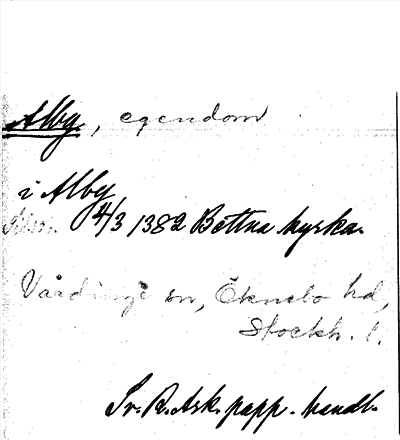 Alby, egendom
i Alby
4/3 1382 Bettna kyrka.
Vårdinge sn, Öknebo hd,
Stockh. l.
Sv. R. Ark. papp. handl.